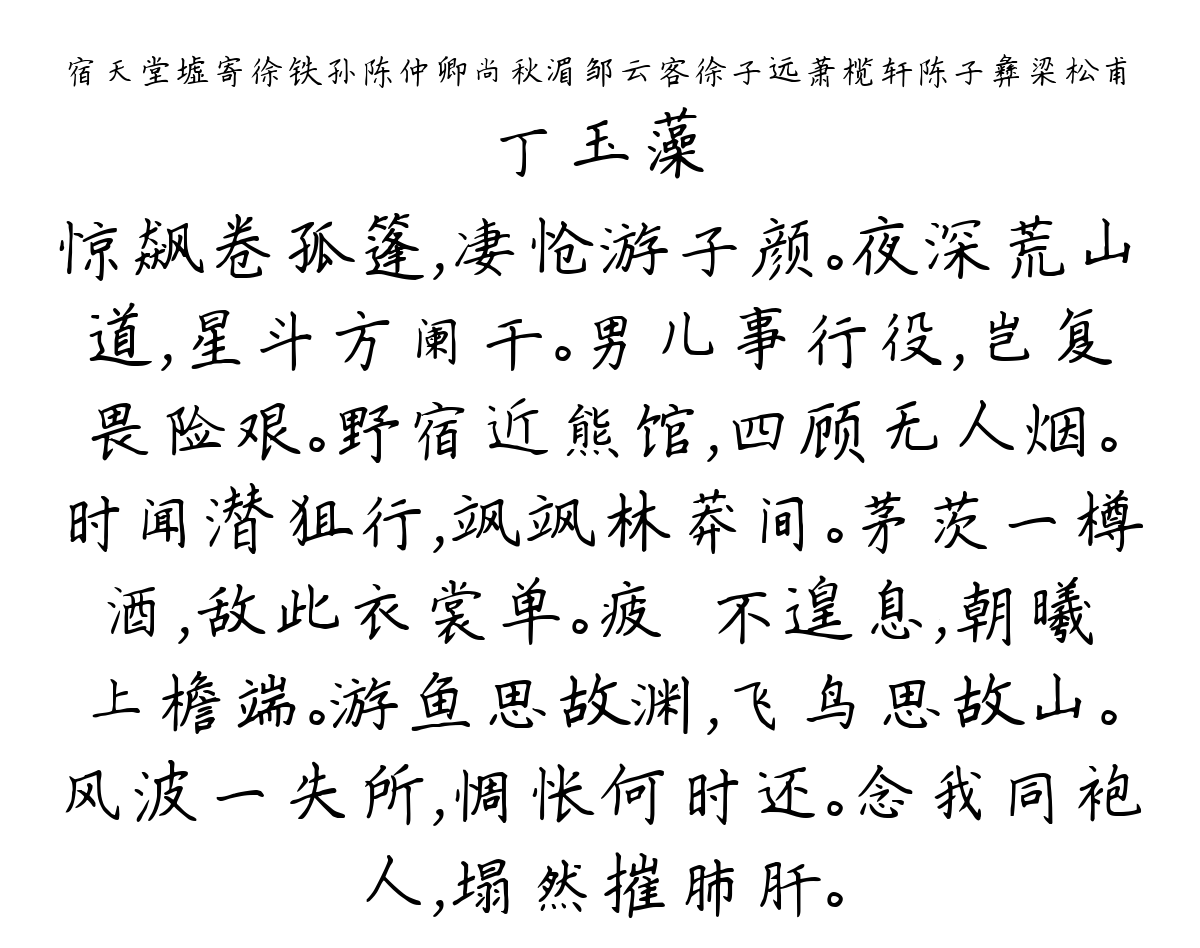 宿天堂墟寄徐铁孙陈仲卿尚秋湄邹云客徐子远萧榄轩陈子彝梁松甫
丁玉藻
惊飙卷孤篷,凄怆游子颜。夜深荒山
道,星斗方阑干。男儿事行役,岂复
畏险艰。野宿近熊馆,四顾无人烟。
时闻潜狙行,飒飒林莽间。茅茨一樽
酒,敌此衣裳单。疲 不遑息,朝曦
上檐端。游鱼思故渊,飞鸟思故山。
风波一失所,惆怅何时还。念我同袍
人,塌然摧肺肝。